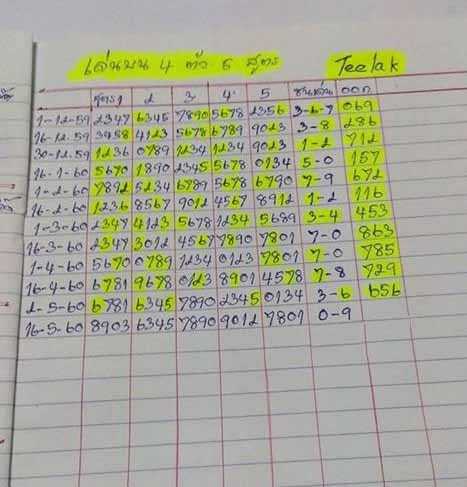 เด่นบน 4 ตัว 5 สูตร Teelak
สูตร1 2 3 4 5 ชนเด่น ออก
1-12-59 2347 6345 7890 5678 2356 3-6-7 069
16-12-59 3458 4123 5678 6789 9023 3-8 286
30-12-59 1236 0789 1234 1234 9023 1-2 712
16-1-60 5670 1890 2345 5678 0134 5-0 157
1-2-60 7892 5234 6789 5678 6790 7-9 672
16-2-60 1236 8567 9012 4567 8912 1-2 116
1-3-60 2347 4123 5678 1234 5689 3-4 453
16-3-60 2347 3012 4567 7890 7801 7-0 863
1-4-60 5670 0789 1234 0123 7801 7-0 785
16-4-60 6781 9678 0123 8901 4578 7-8 729
2-5-60 6781 6345 7890 2345 0134 3-6 656
16-5-60 8903 6345 7890 9012 7801 0-9